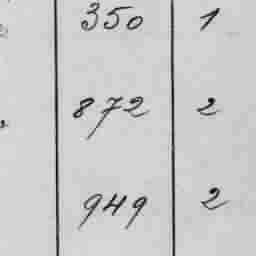 350 1
872 2
949 2